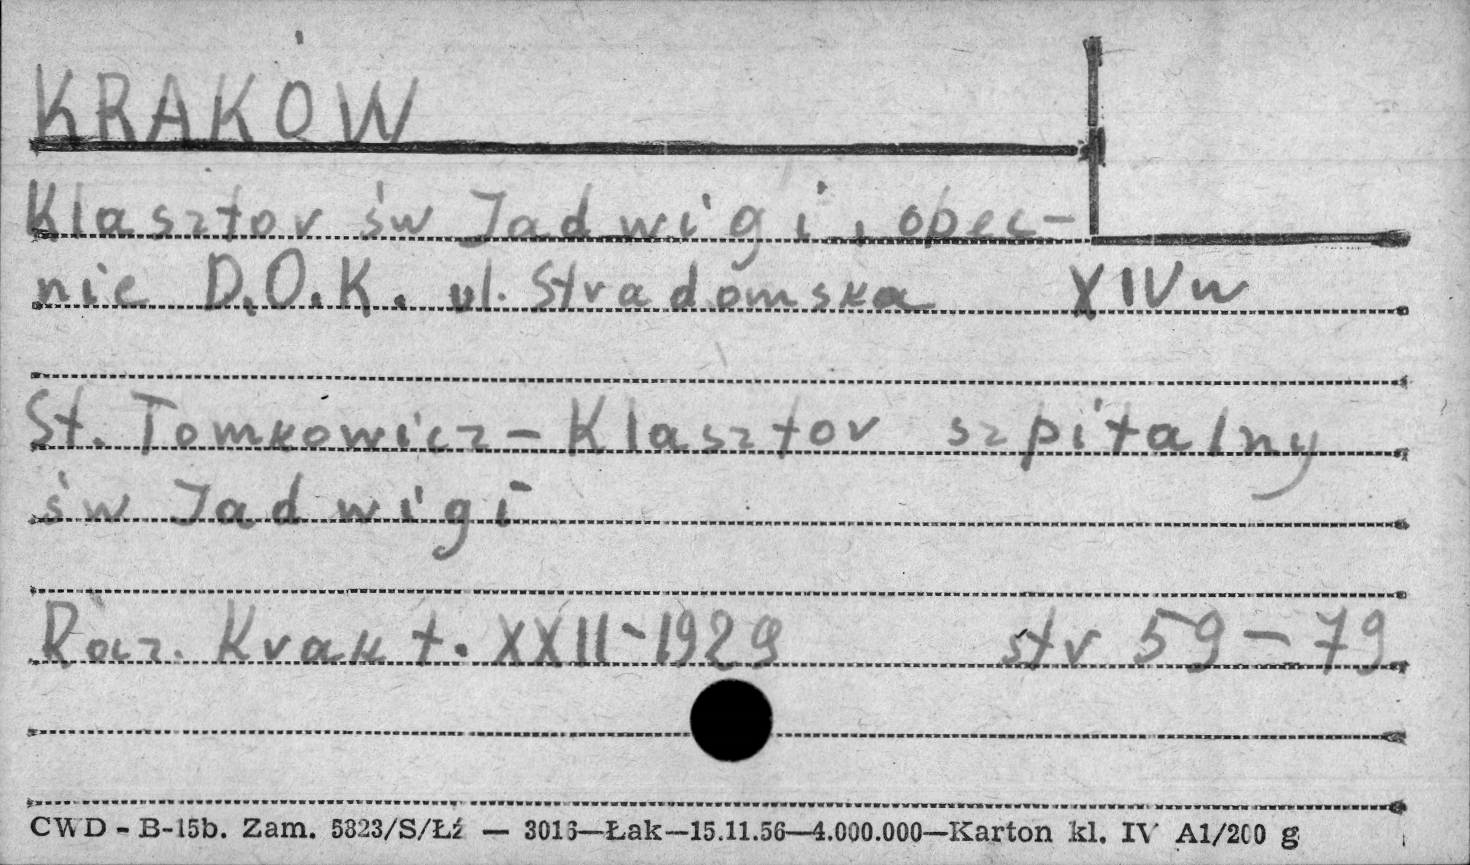 KRAKÓW
Klasztor św Jadwigi, obec-
nie D.O.K. ul. Stradomska XIV w
St. Tomkowicz - Klasztor szpitalny
św Jadwigi
Rocz. Krak t. XXII - 1929 str 59 - 79
CWD - B-15b. Zam. 5823/S/Łź — 3016—Łak—15.11.56—4.000.000—Karton kl. IV A1/200 g